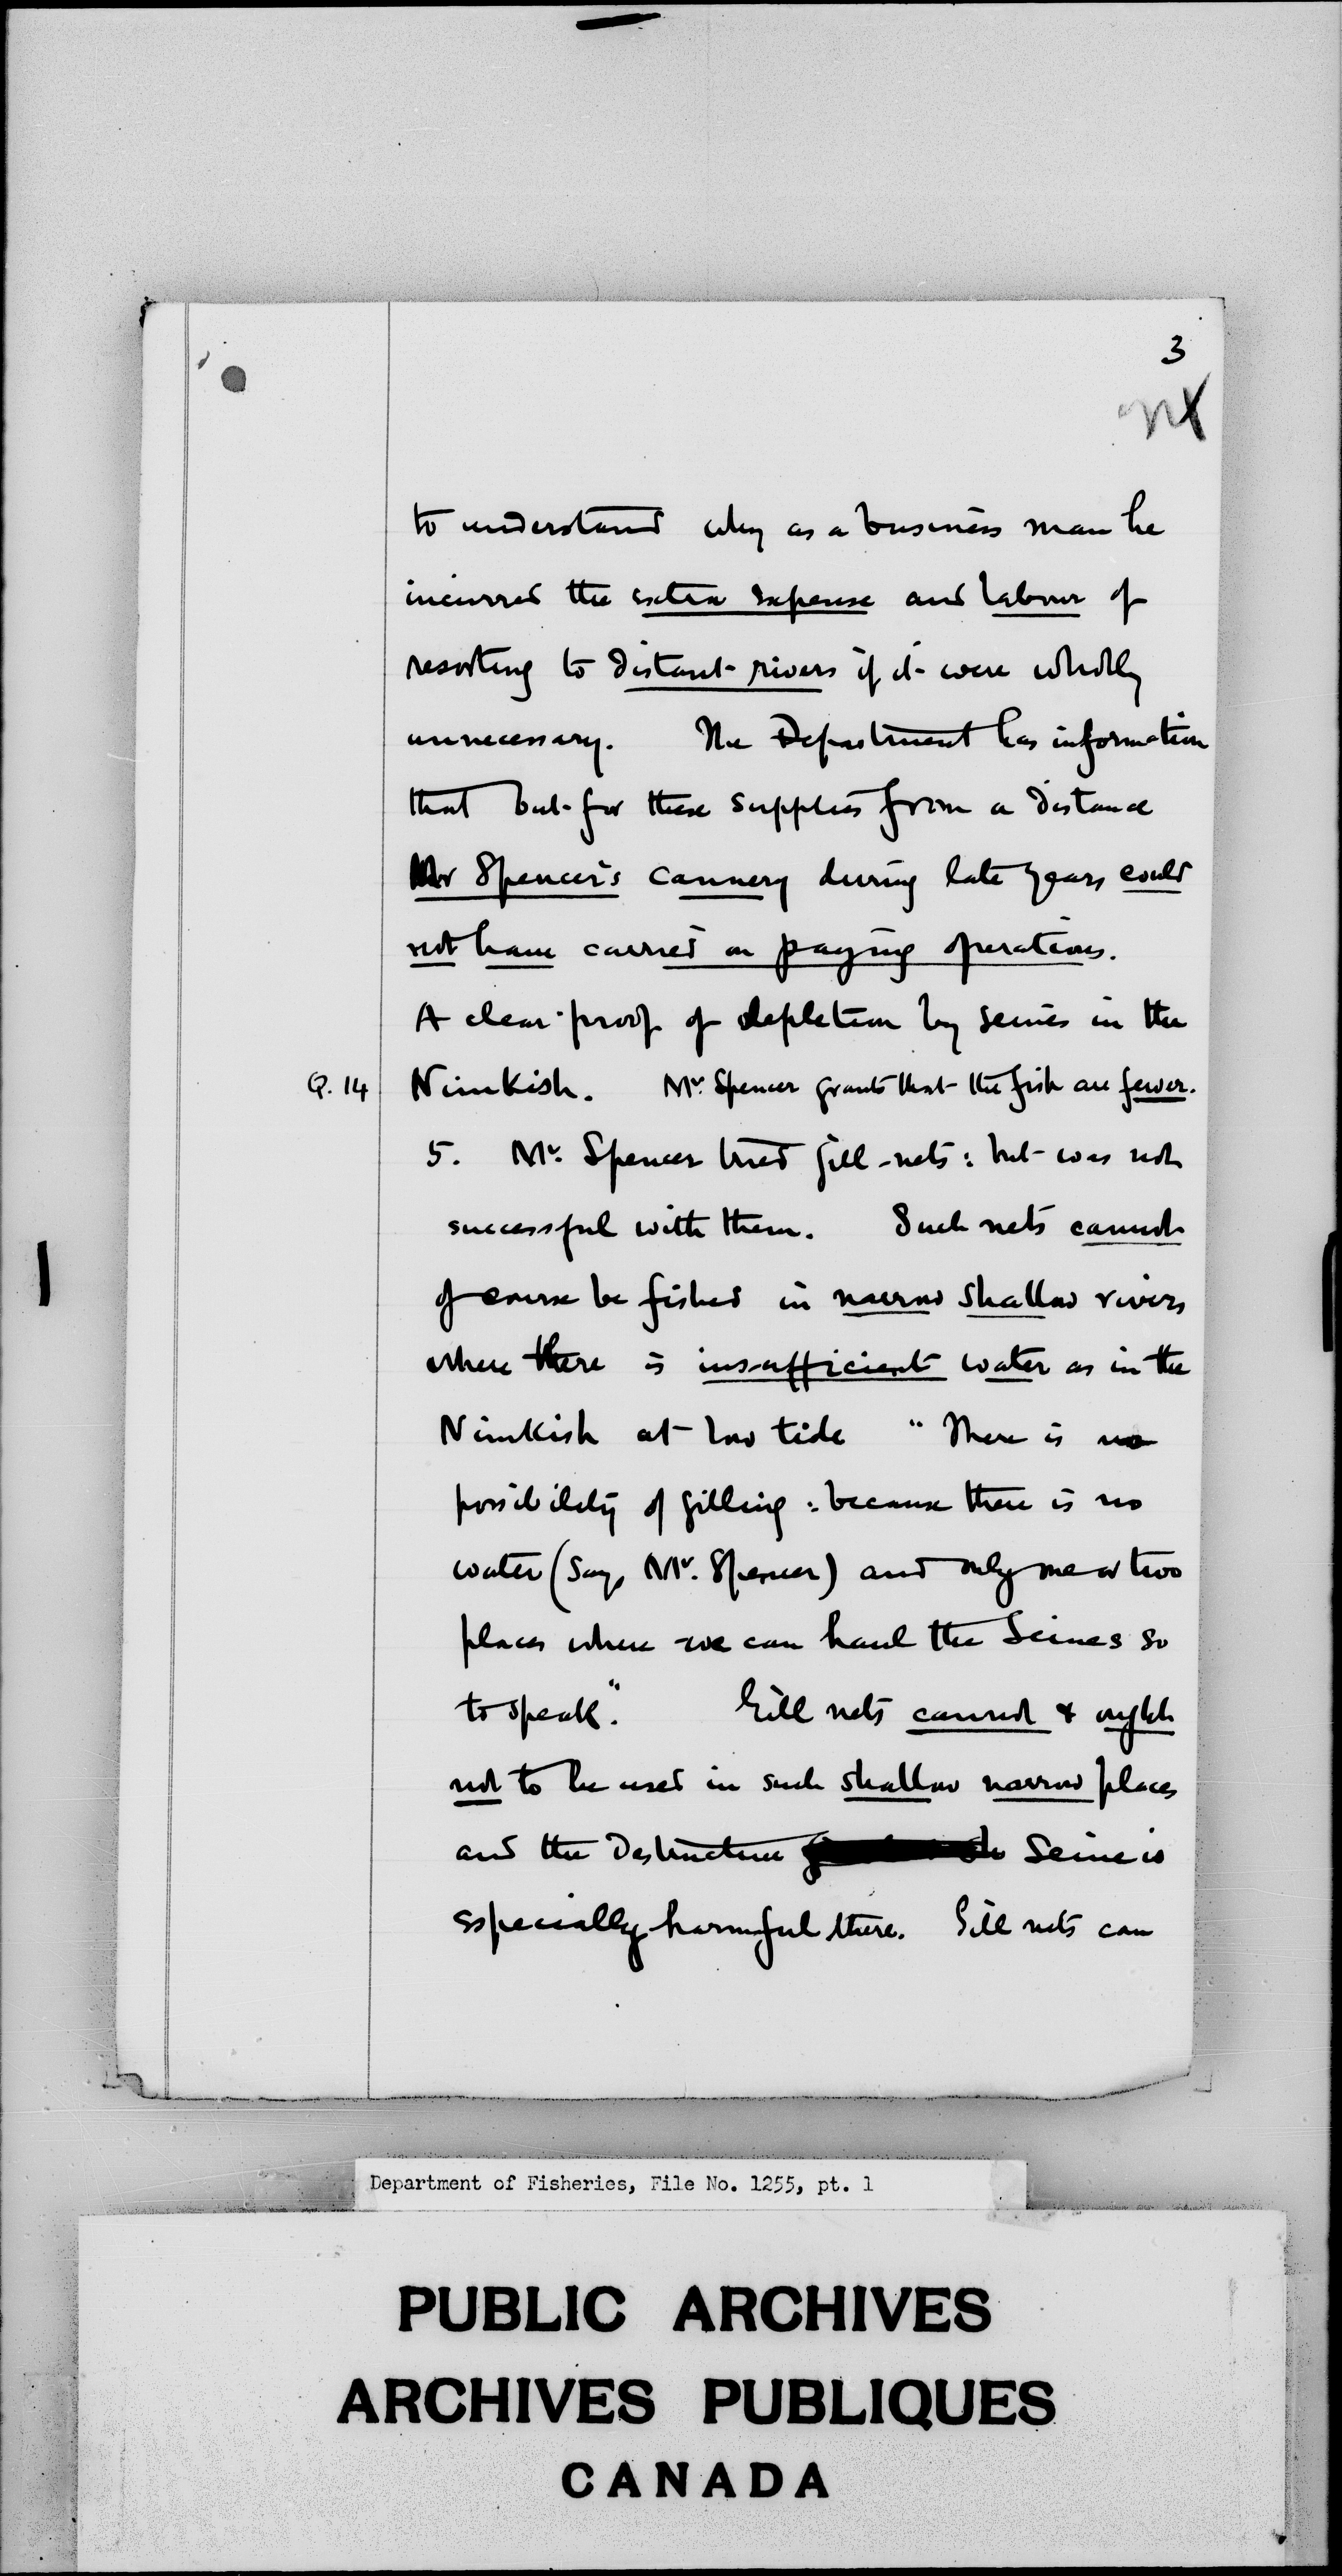 3
to understand why as a business man he
incurred the extra expense and labour of
resorting to distant rivers if it were wholly
unnecessary. The Department has information
that but for these supplies from a distance
Mr Spencer's cannery during late years could
not have carried on paying operations.
A clear proof of depletion by seines in the
Q. 14 Nimkish. Mr. Spencer grants that the fish are fewer.
5. Mr. Spencer tried gill-nets: but was not
successful with them. Such nets cannot
of course be fished in narrow shallow rivers
where there is insufficient water as in the
Nimkish at low tide "There is no
possibility of gilling: because there is no
water (says Mr. Spencer) and only one or two
places where we can haul the Seines so
to speak". Gill nets cannot & ought
not to be used in such shallow narrow places
and the Destructive Seine is
especially harmful there. Gill nets can
Department of Fisheries, File No. 1255, pt. 1
PUBLIC ARCHIVES
ARCHIVES PUBLIQUES
CANADA